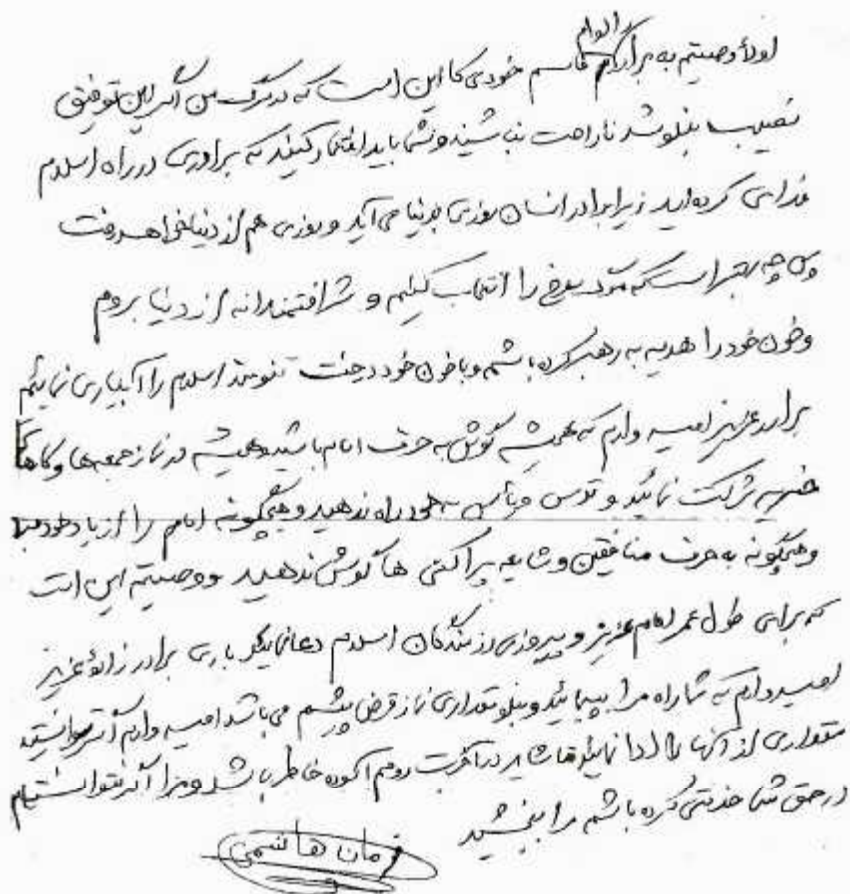 اولاً وصیتم به برادرم قاسم خودی کا این است که در مرگ من اگر این توفیق
نصیب بنده شد ناراحت نباشید و شما باید افتخار کنید که برادری در راه اسلام
فدای کرده‌اید زیرا برادر انسان روزی بدنیا می آید و روزی هم از دنیا خواهد رفت
پس چه بهتر است که مرگ سرخ را انتخاب کنیم و شرافتمندانه از دنیا بروم
و خون خود را هدیه به رهبر کرده باشم و با خون خود درخت تنومند اسلام را آبیاری نمائیم
برادر عزیز امید وارم که همیشه گوش به حرف امام باشید و همیشه در نماز جمعه‌ها و کارهای
خیریه شرکت نمائید و ترس و یأس به خود راه ندهید و هیچگونه امام را از یاد خود
و هیچگونه به حرف منافقین و شایعه پراکنی ها گوش ندهید و وصیتم این است
که برای طول عمر امام عزیز و پیروزی رزمندگان اسلام دعا نمائید باری برادر زاده عزیز
امیدوارم که شما راه مرا بپیمائید و بنده مقداری نماز قرض پیشم می باشد امید وارم اگر توانستید
مقداری از آنها را ادا نمائید تا شاید در آخرت روحم آسوده خاطر باشد و مرا اگر نتوانستم
در حق شما خدمتی کرده باشم مرا ببخشید
هاشمی